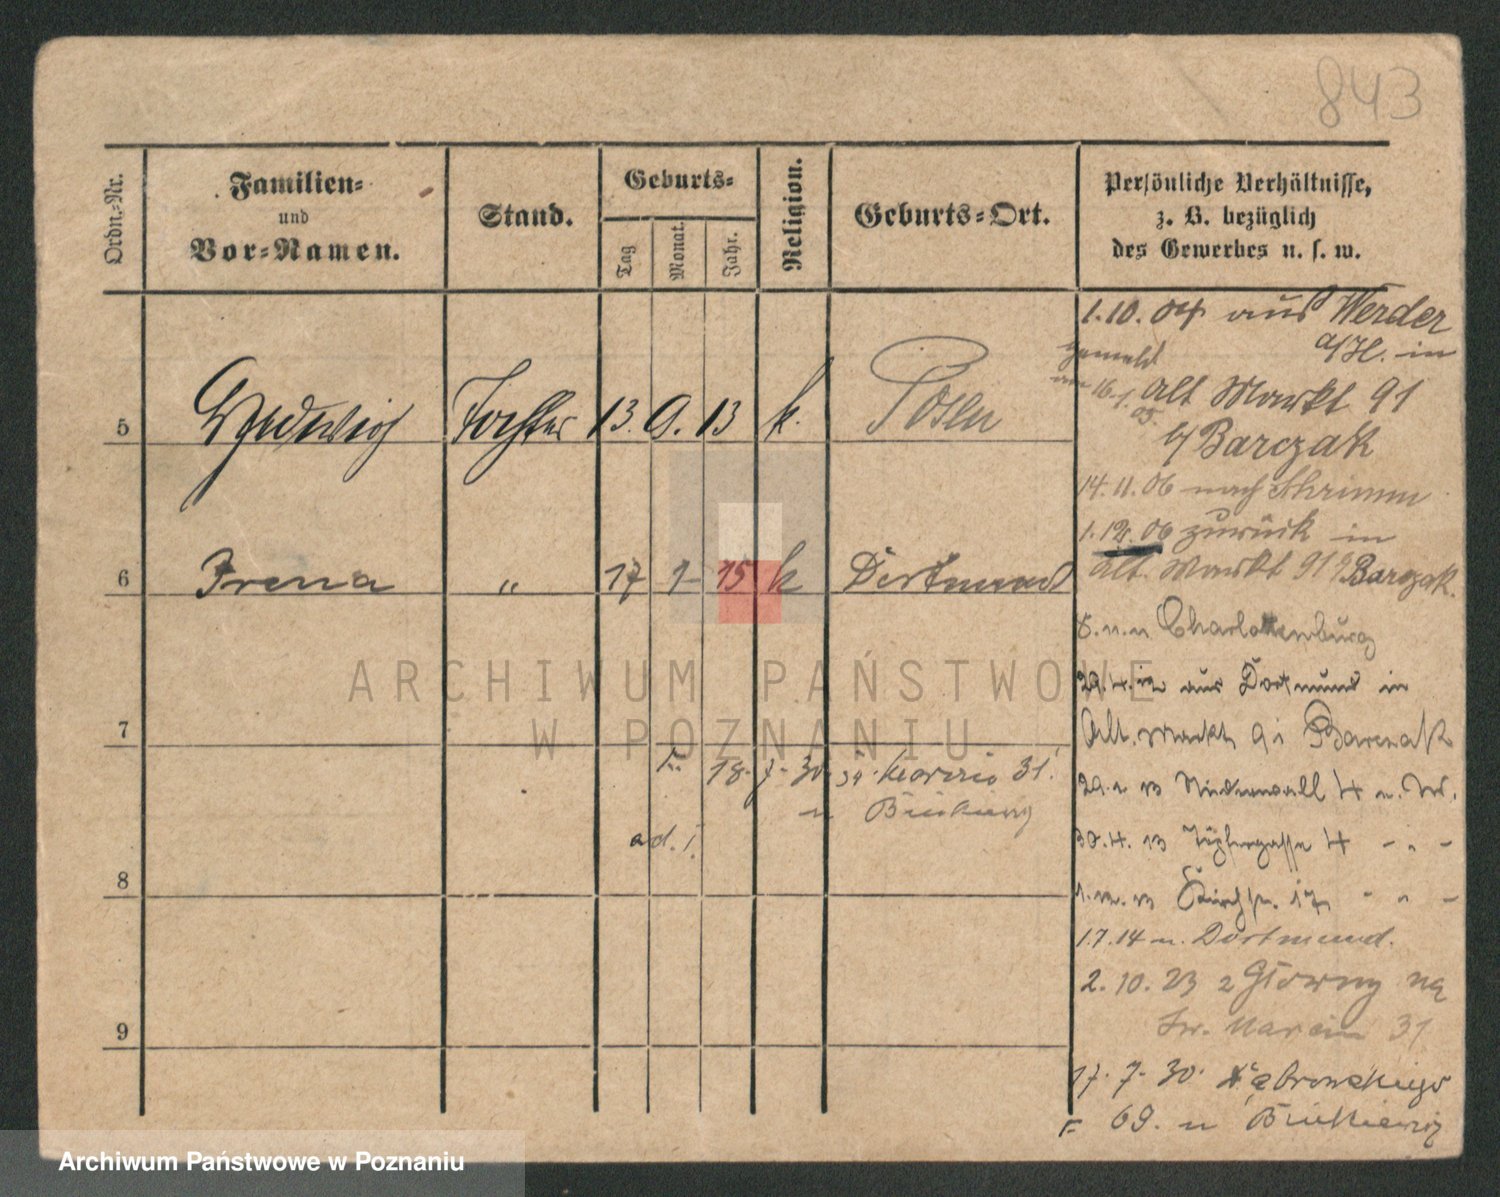 843
Ordn.-Nr.
Familien-
und
Vor-Namen.
Stand.
Geburts-
Tag
Monat.
Jahr.
Religion.
Geburts-Ort.
Persönliche Verhältnisse,
z. B. bezüglich
des Gewerbes u. s. w.
5 Hedwig Tochter 13. 9. 13 k. Posen
6 Irena " 17 1 15 k Dortmund
7
8
9
18. 7. 30. Marcin 31.
ad. 1.
1.10.04 aus Werder
a/H. in
gemeld
am 16.1.05.
Alt Markt 91
b/ Barczak
14.11.06 nach Schrimm
1.12.06 zurück in
Alt. Markt 91 b Barczak.
Charlottenburg
29.4.12 aus Dortmund in
Alt. Markt 91 Barczak
Niederwall 4
30.4.13 Töpfergasse 4 - " -
17 - " -
1.7.14 n. Dortmund.
2.10.23 z Główny na
Św. Marcin 31
17. 7. 30. Dąbrowskiego
69. u
ARCHIWUM PAŃSTWOWE
W POZNANIU
Archiwum Państwowe w Poznaniu